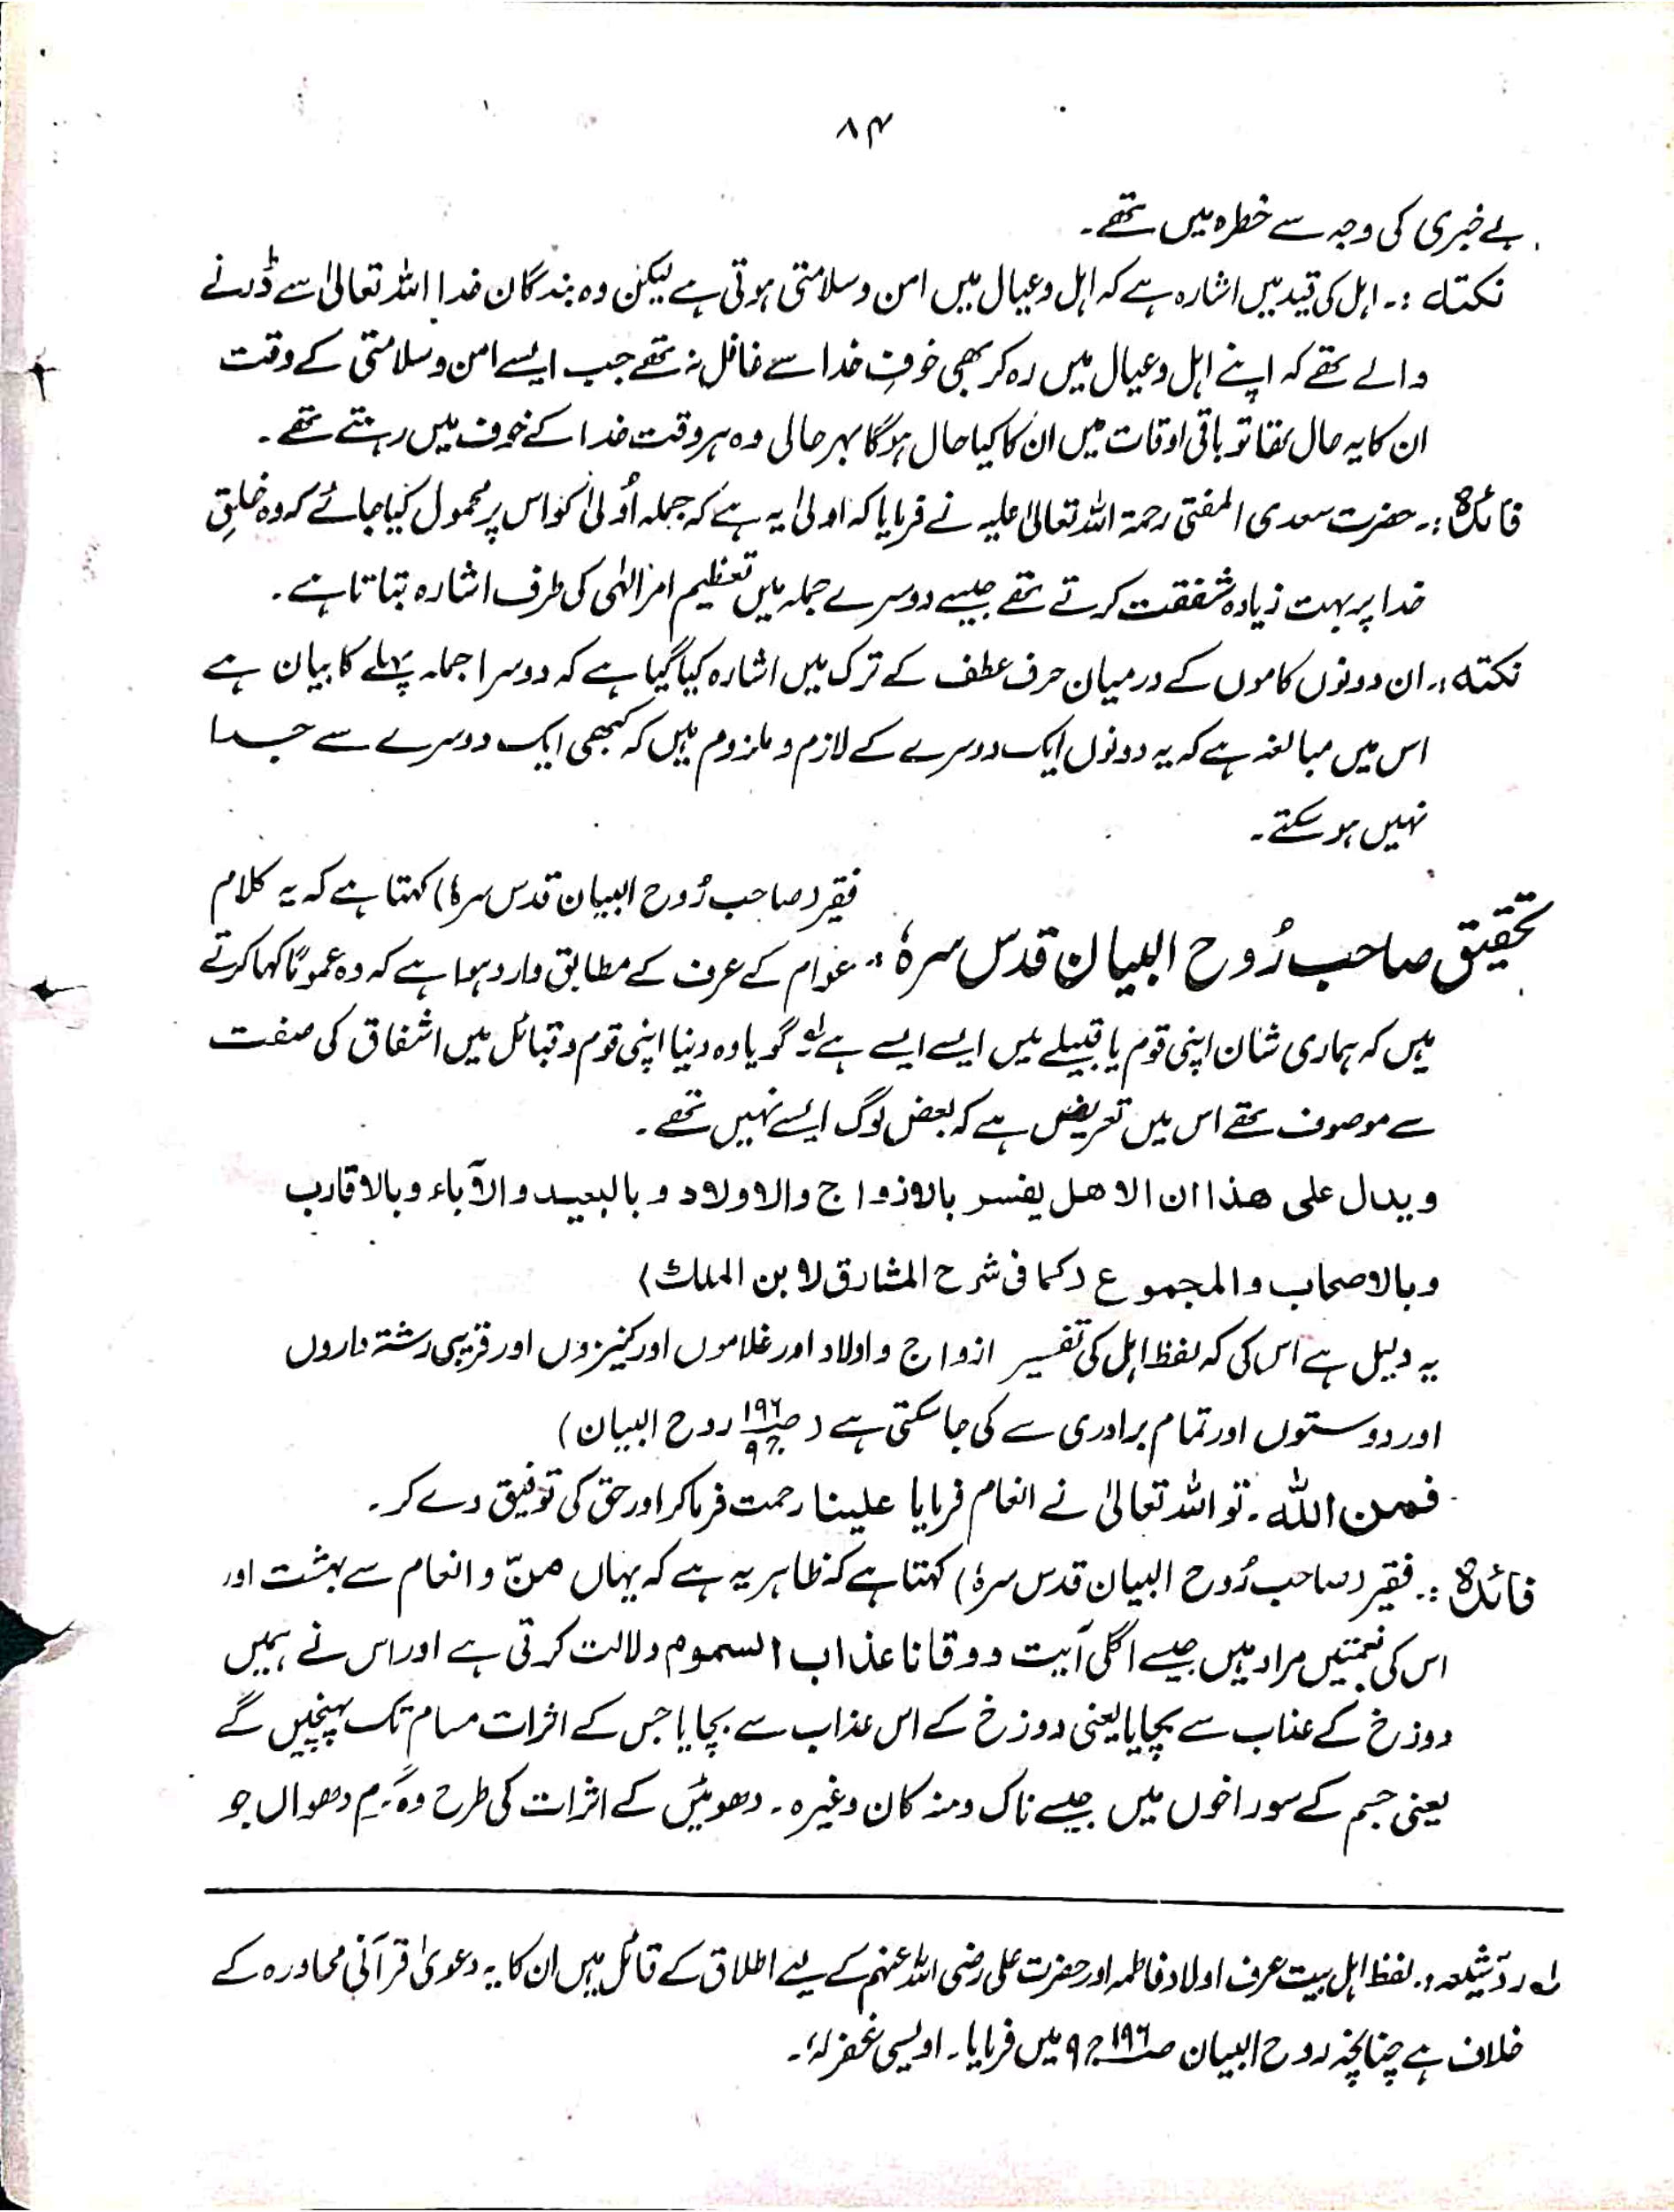 ۸۴
بے خبری کی وجہ سے خطرہ میں تھے۔
نکتہ :۔ اہل کی قید میں اشارہ ہے کہ اہل و عیال میں امن و سلامتی ہوتی ہے لیکن وہ بندگان خدا اللہ تعالیٰ سے ڈرنے
والے تھے کہ اپنے اہل و عیال میں رہ کر بھی خوفِ خدا سے غافل نہ تھے جب ایسے امن و سلامتی کے وقت
ان کا یہ حال تھا تو باقی اوقات میں ان کا کیا حال ہوگا بہر حالی وہ ہر وقت خدا کے خوف میں رہتے تھے۔
فائدہ :۔ حضرت سعدی المفتی رحمۃ اللہ تعالیٰ علیہ نے فرمایا کہ اولیٰ یہ ہے کہ جملہ اُولیٰ کو اس پر محمول کیا جائے کہ وہ خلقِ
خدا پر بہت زیادہ شفقت کرتے تھے جیسے دوسرے جملہ میں تعظیم امر الٰہی کی طرف اشارہ بتاتا ہے۔
نکتہ :۔ ان دونوں کاموں کے درمیان حرف عطف کے ترک میں اشارہ کیا گیا ہے کہ دوسرا جملہ پہلے کا بیان ہے
اس میں مبالغہ ہے کہ یہ دونوں ایک دوسرے کے لازم و ملزوم ہیں کہ کبھی ایک دوسرے سے جدا
نہیں ہو سکتے۔
فقیر (صاحب رُوح البیان قدس سرہٗ) کہتا ہے کہ یہ کلام
تحقیق صاحب رُوح البیان قدس سرہٗ :۔ عوام کے عرف کے مطابق وارد ہوا ہے کہ وہ عموماً کہا کرتے
ہیں کہ ہماری شان اپنی قوم یا قبیلے میں ایسے ایسے ہے لہٰ گویا وہ دنیا اپنی قوم و قبائل میں اشفاق کی صفت
سے موصوف تھے اس میں تعریض ہے کہ بعض لوگ ایسے نہیں تھے۔
ویدل علی ھذا ان الاھل یفسر بالازواج والاولاد وبالبعید والآباء وبالاقارب
وبالاصحاب والمجموع (کما فی شرح المشارق لابن الملک)
یہ دلیل ہے اس کی کہ لفظ اہل کی تفسیر ازواج و اولاد اور غلاموں اور کنیزوں اور قریبی رشتہ داروں
اور دوستوں اور تمام برادری سے کی جا سکتی ہے (صـ۱۹۶ ج۹ روح البیان)
فمن اللہ ۔ تو اللہ تعالیٰ نے انعام فرمایا علینا رحمت فرما کر اور حق کی توفیق دے کر۔
فائدہ :۔ فقیر (صاحب رُوح البیان قدس سرہٗ) کہتا ہے کہ ظاہر یہ ہے کہ یہاں منّ و انعام سے بہشت اور
اس کی نعمتیں مراد ہیں جیسے اگلی آیت ووقانا عذاب السموم دلالت کرتی ہے اور اس نے ہمیں
دوزخ کے عذاب سے بچایا یعنی دوزخ کے اس عذاب سے بچایا جس کے اثرات مسام تک پہنچیں گے
یعنی جسم کے سوراخوں میں جیسے ناک و منہ کان وغیرہ۔ دھوئیں کے اثرات کی طرح وہ گرم دھواں جو
لہ ردّ شیعہ :۔ لفظ اہل بیت عرف اولاد فاطمہ اور حضرت علی رضی اللہ عنہم کے لیے اطلاق کے قائل ہیں ان کا یہ دعویٰ قرآنی محاورہ کے
خلاف ہے چنانچہ روح البیان صـ۱۹۶ ج۹ میں فرمایا۔ اویسی غفرلہٗ۔